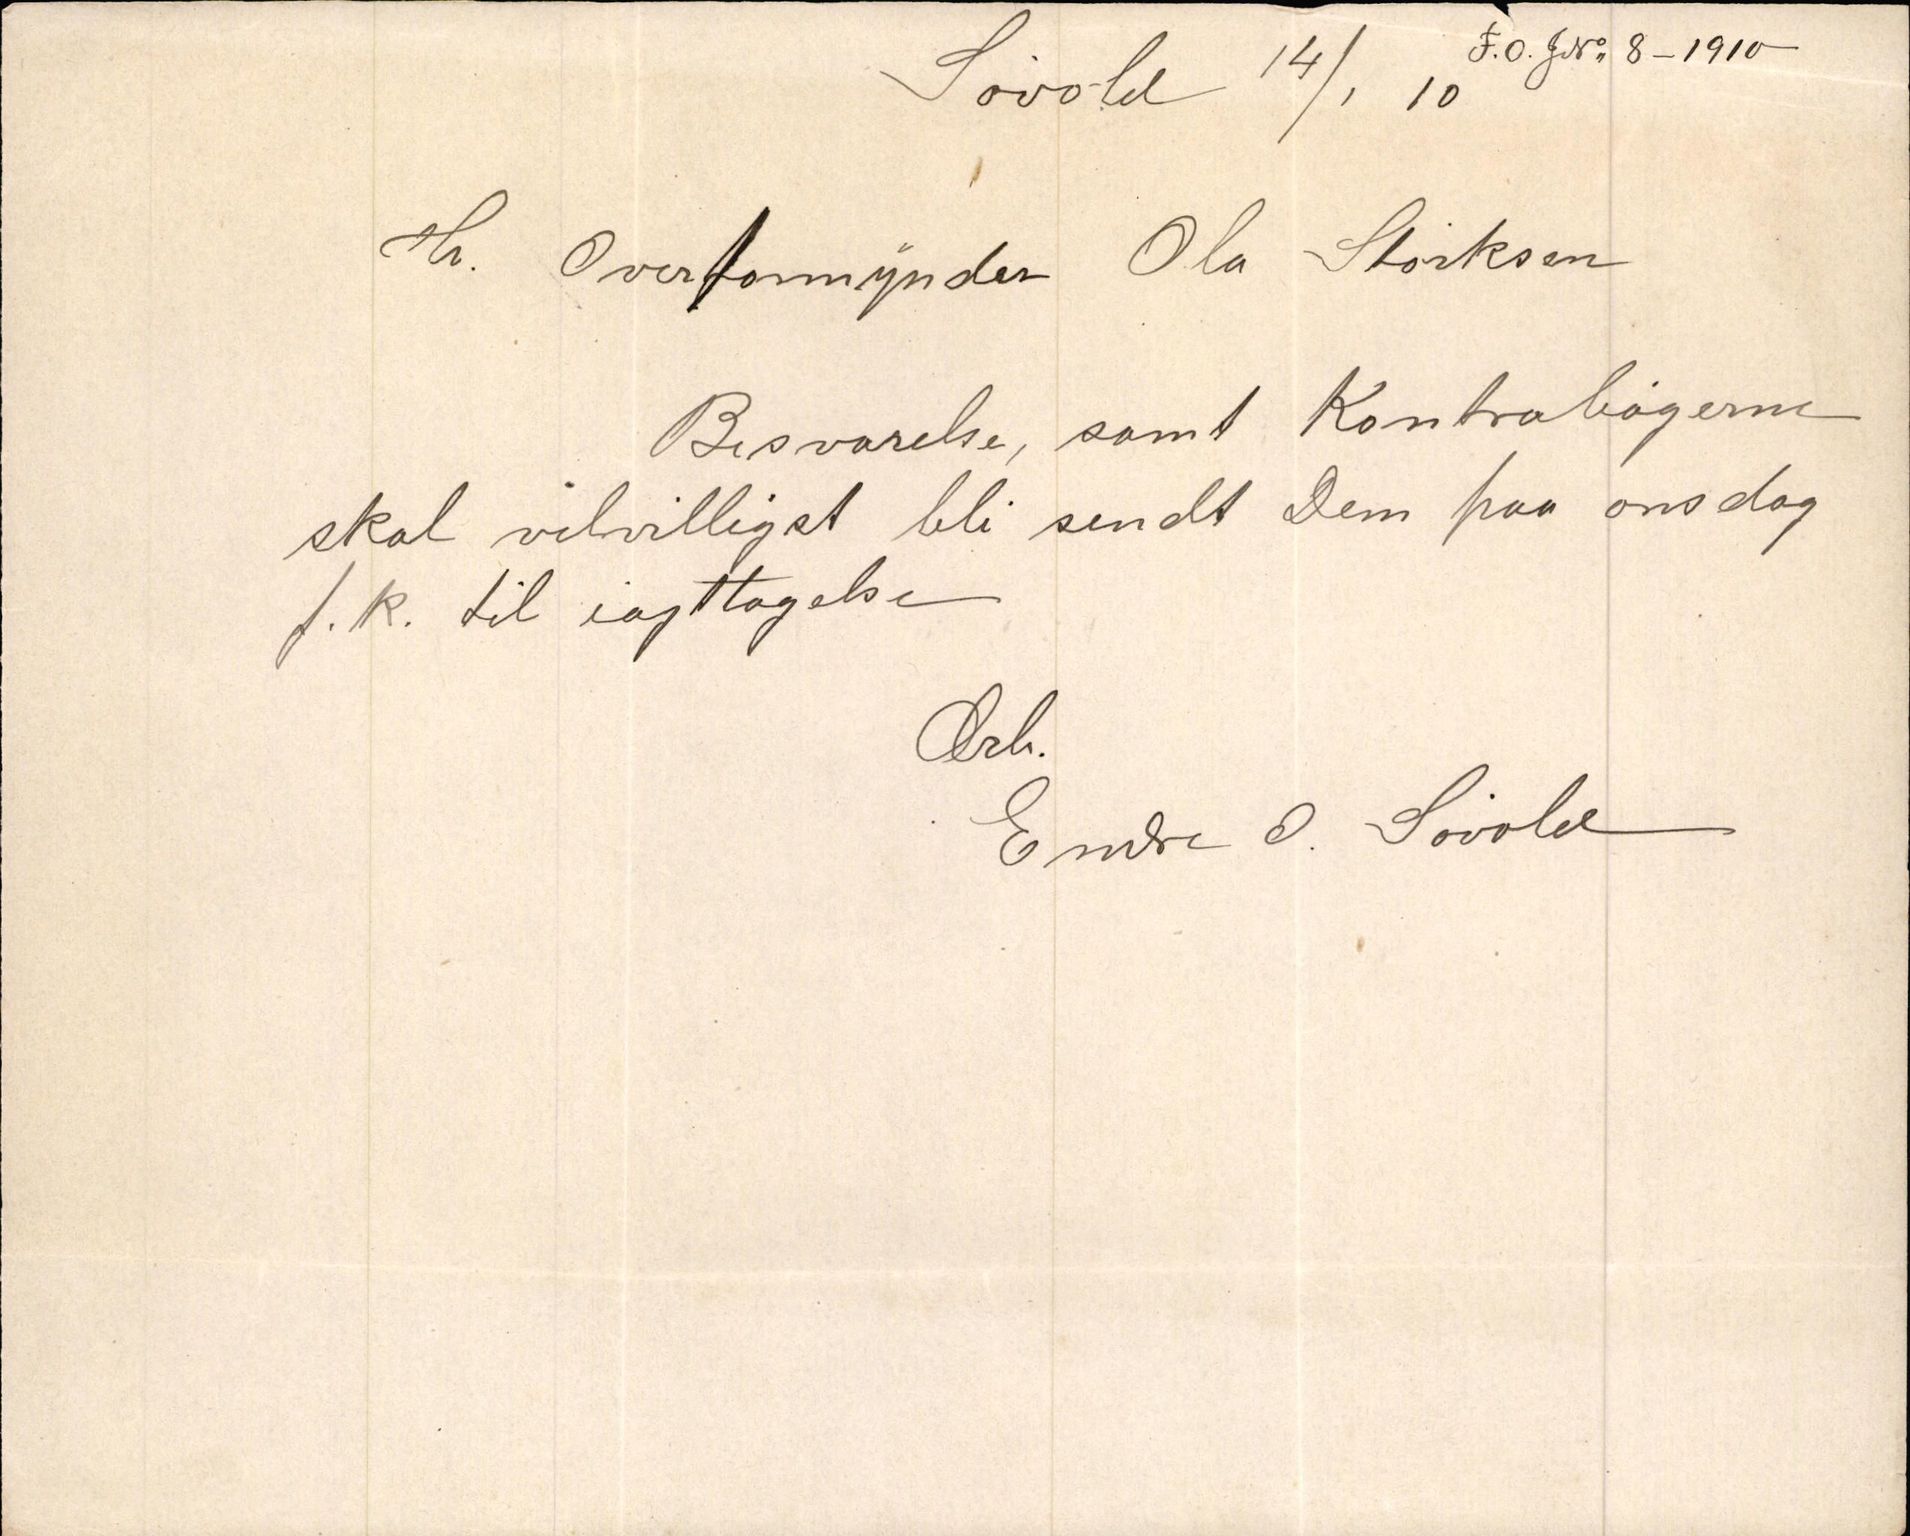 F.O. JNo. 8 – 1910
Søvold 14/1 10
Hr. Overformynder Ola Størksen
Besvarelse, samt Kontrabøgerne
skal velvilligst bli sendt Dem paa onsdag
f.k. til iagttagelse
Ærb.
Endre O. Søvold